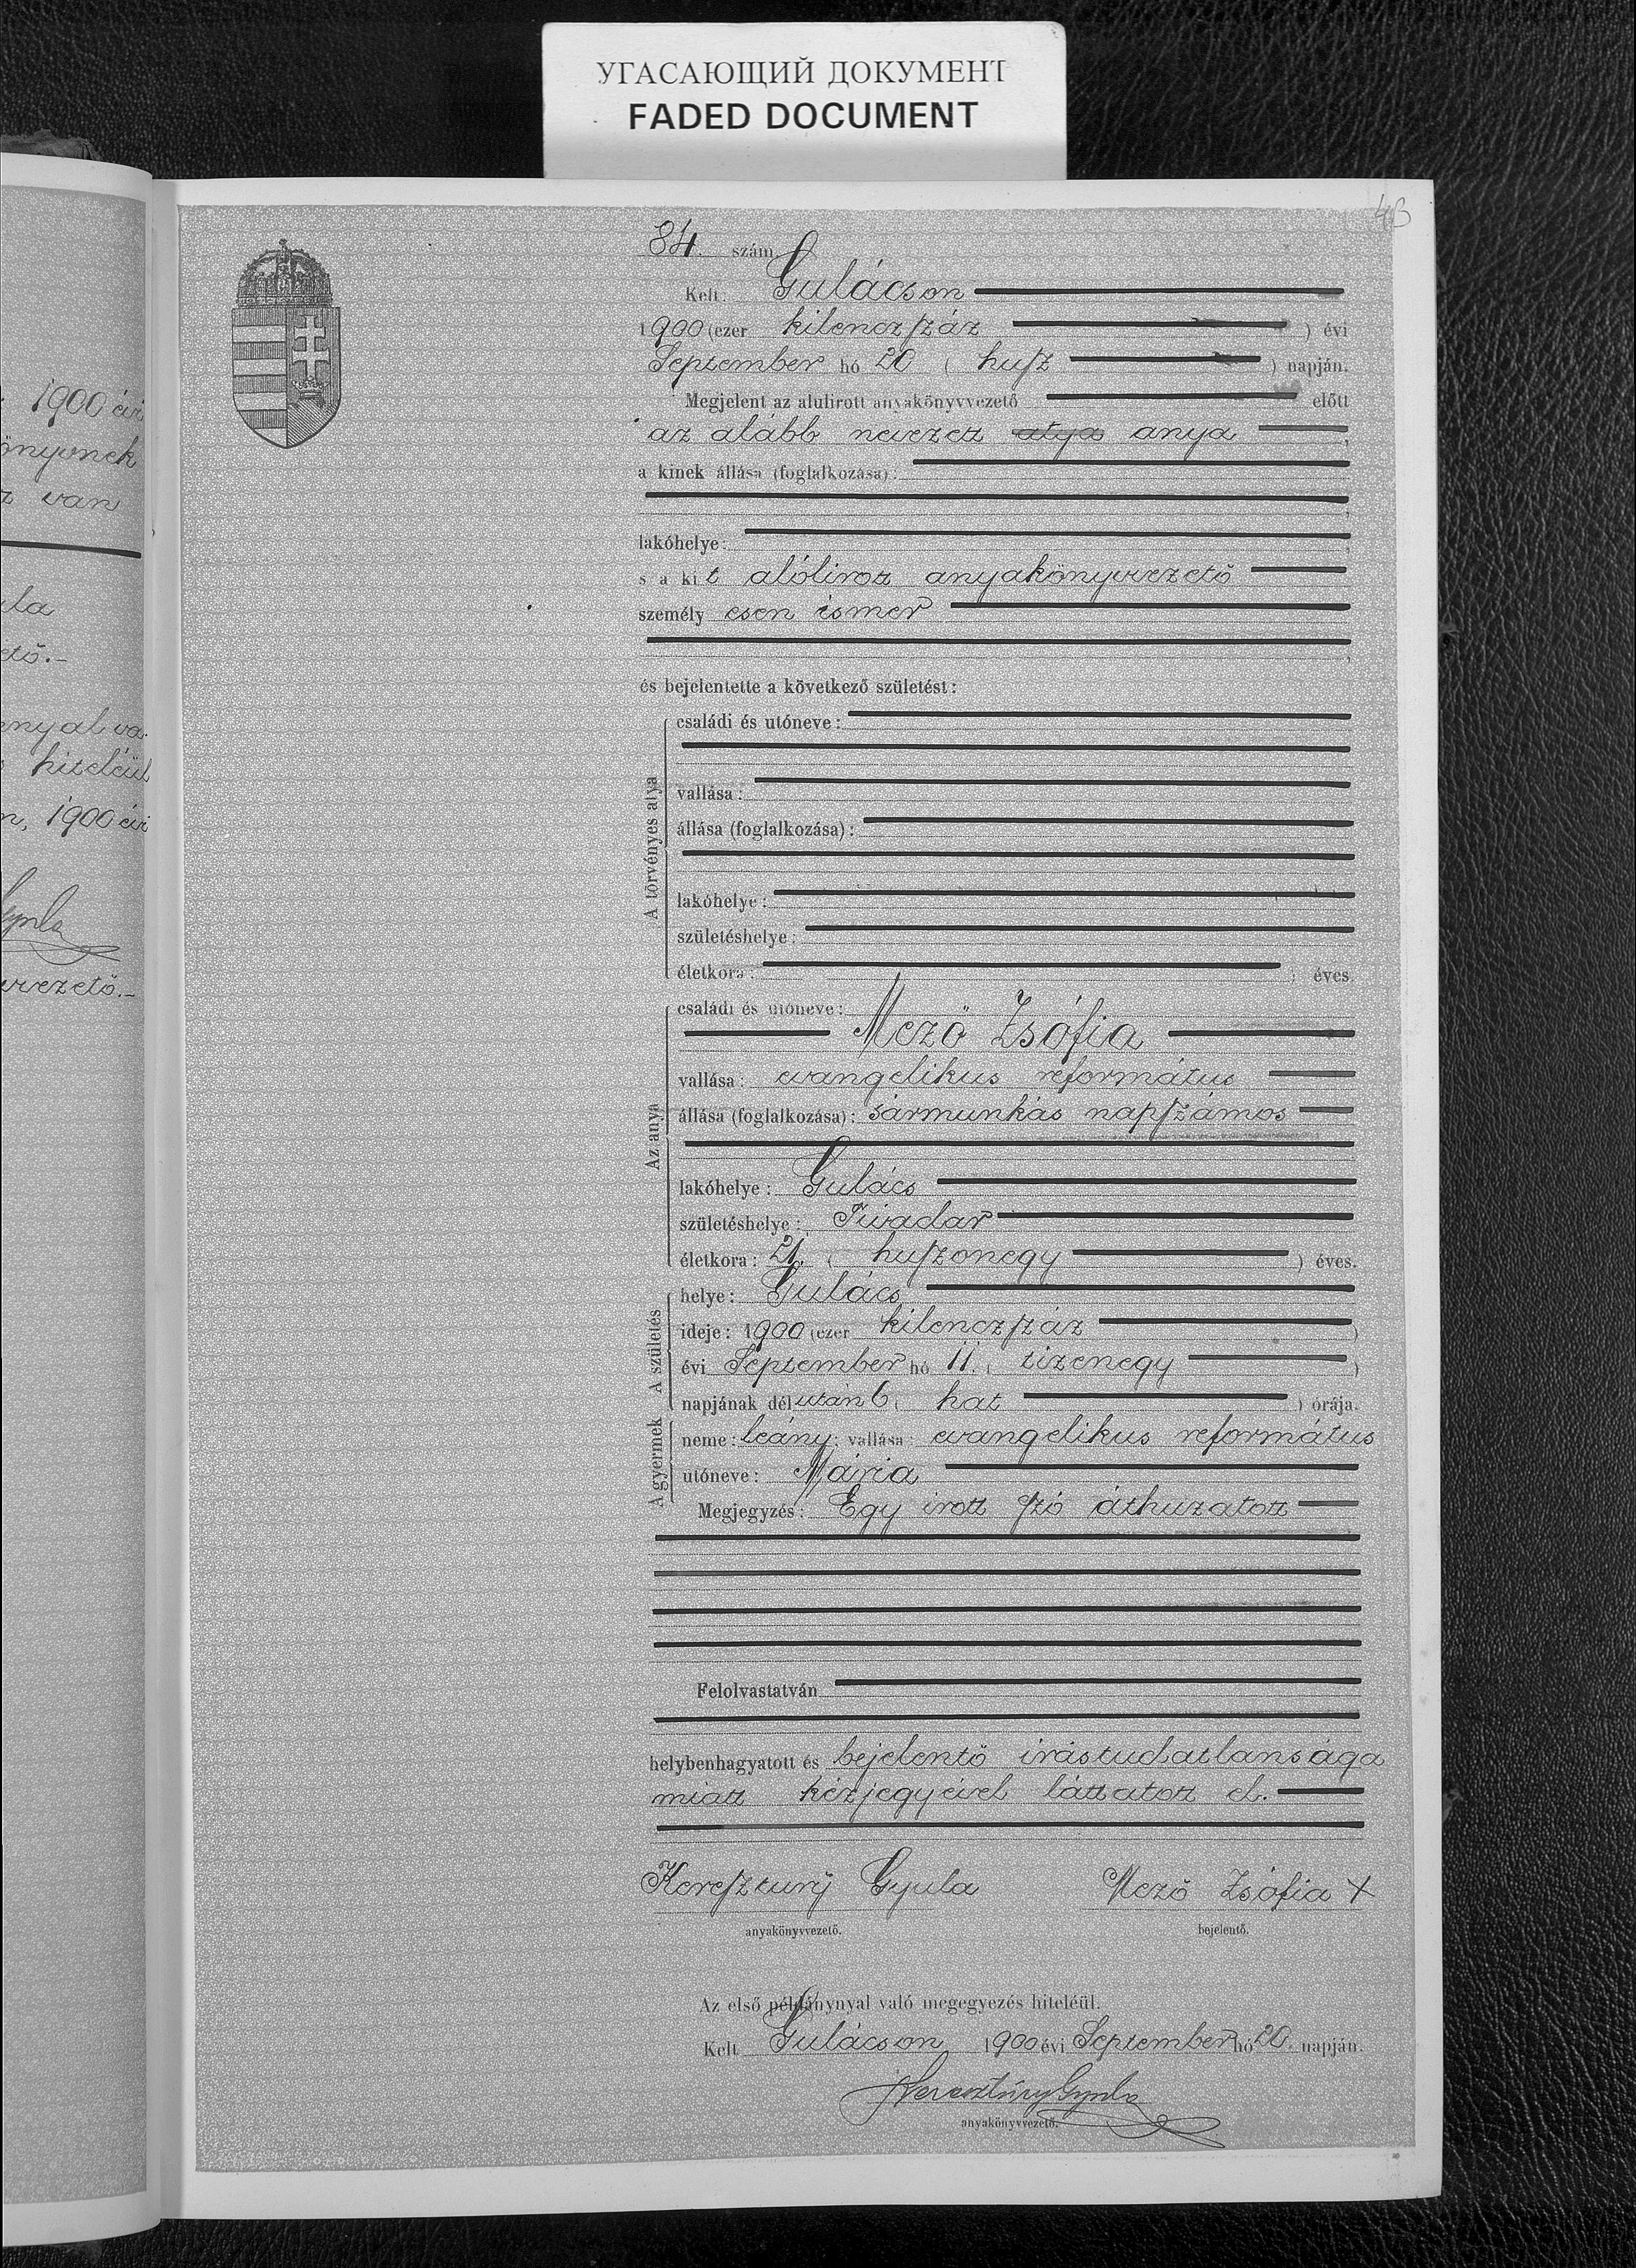 УГАСАЮЩИЙ ДОКУМЕНТ
FADED DOCUMENT
1900 évi
önyvnek
van
ula
ető.-
hiteléül
1900 évi
Gyula
vezető.-
43
84. szám.
Kelt: Gulácson
1900 (ezer kilenczszáz ) évi
September hó 20 ( husz ) napján.
Megjelent az alulirott anyakönyvvezető előtt
az alább nevezett atya anya ,
a kinek állása (foglalkozása):
lakóhelye: ,
s a kit alólirott anyakönyvvezető
személyesen ismer
,
és bejelentette a következő születést:
A törvényes atya
családi és utóneve:
vallása:
állása (foglalkozása):
lakóhelye:
születéshelye:
életkora: ) éves
Az anya
családi és utóneve:
Mező Zsófia
vallása: evangelikus református
állása (foglalkozása): sármunkás napszámos
lakóhelye: Gulács
születéshelye: Tivadar
életkora: 21. ( huszonegy ) éves.
A születés
helye: Gulács
ideje: 1900 (ezer kilenczszáz )
évi September hó 11. ( tizenegy )
napjának délután 6 ( hat ) órája.
A gyermek
neme: leány; vallása: evangelikus református
utóneve: Mária
Megjegyzés: Egy irott szó áthuzatott
Felolvastatván
helybenhagyatott és bejelentő irástudatlansága
miatt kézjegyével láttatott el.
Keresztury Gyula Mező Zsófia X
anyakönyvvezető. bejelentő.
Az első példánynyal való megegyezés hiteléül.
Kelt Gulácson 1900 évi September hó 20. napján.
Keresztúry Gyula
anyakönyvvezető.